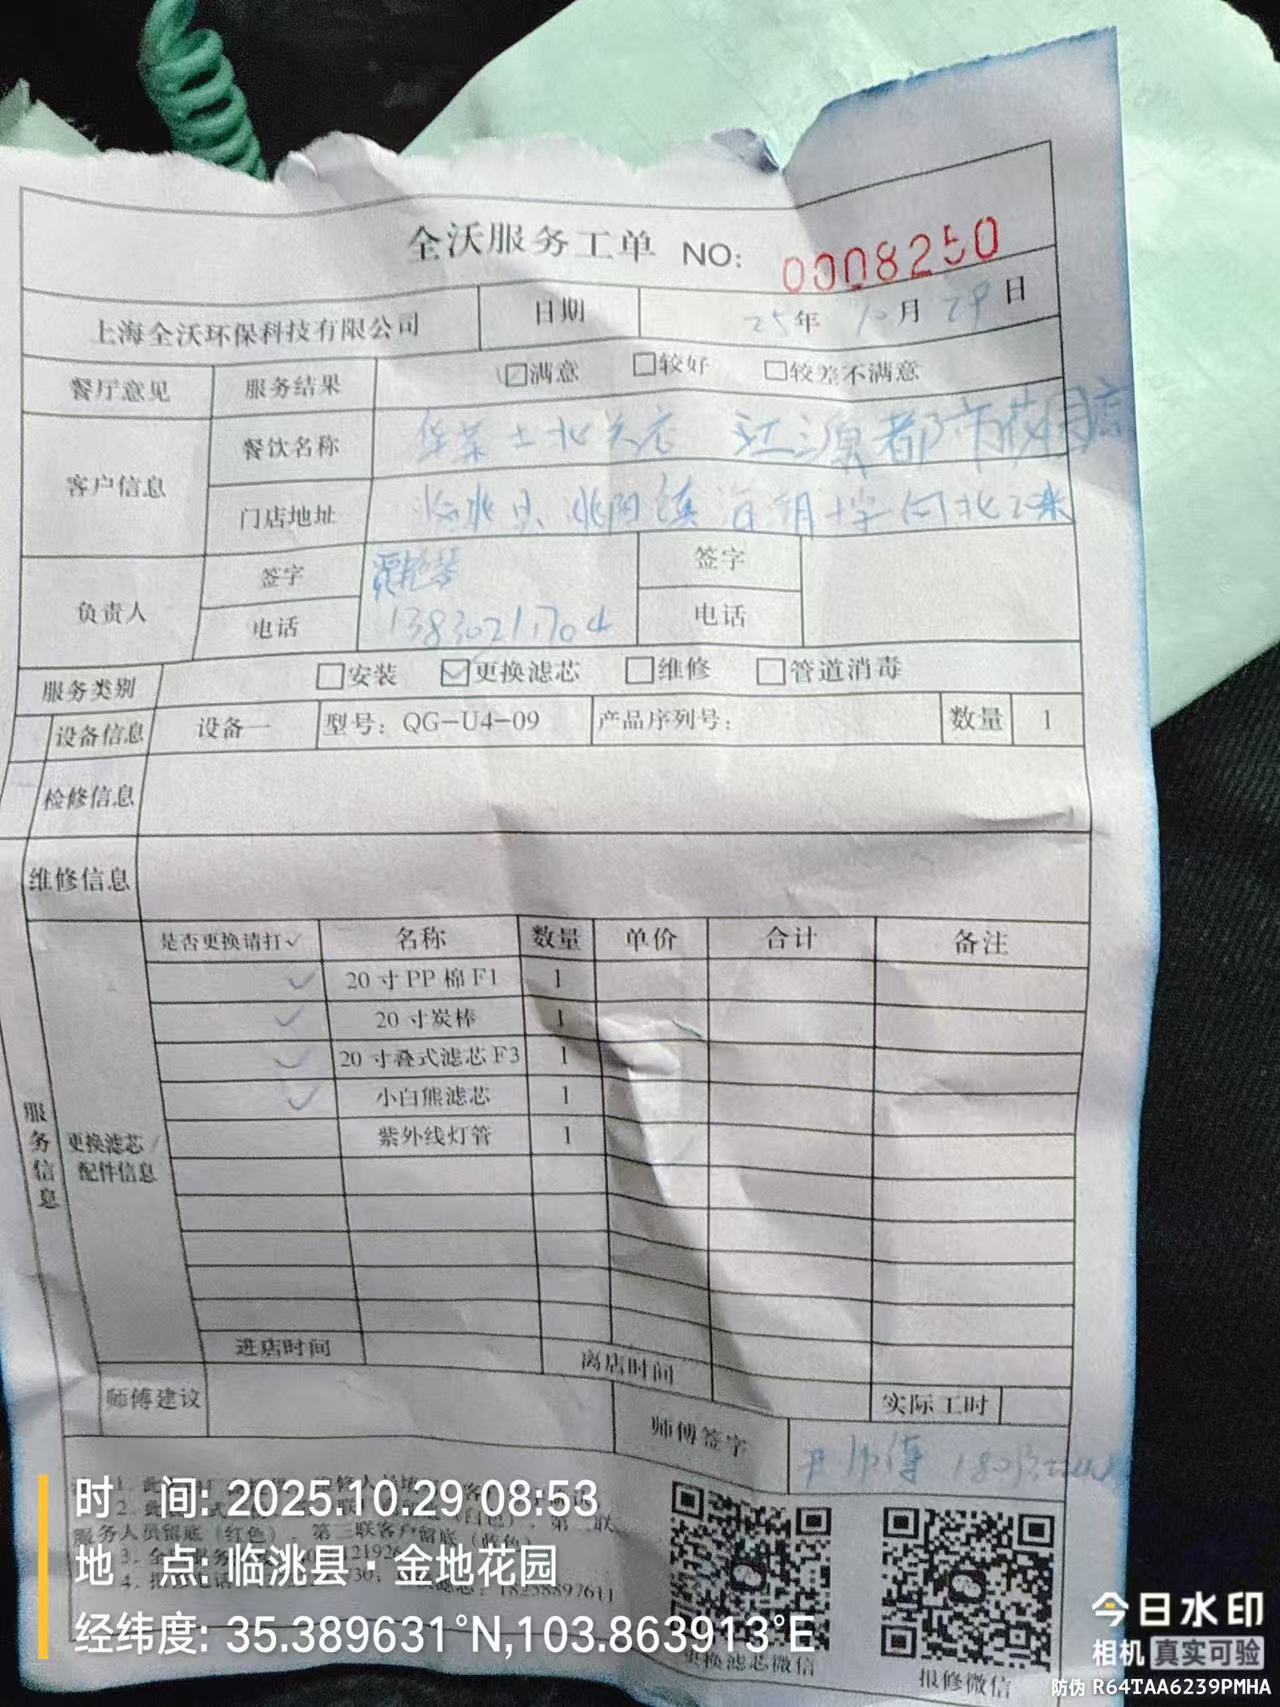 全沃服务工单 NO: 0008250
上海全沃环保科技有限公司 日期 25年 10月 29日
餐厅意见 服务结果 ☑满意 □较好 □较差不满意
客户信息 餐饮名称 华莱士北关店 江源都市花园店
门店地址 临洮县洮阳镇 向北20米
负责人 签字 签字
电话 13830211704 电话
服务类别 □安装 ☑更换滤芯 □维修 □管道消毒
设备信息 设备一 型号: QG-U4-09 产品序列号: 数量 1
检修信息
维修信息
服务信息
更换滤芯/配件信息
是否更换请打✓ 名称 数量 单价 合计 备注
✓ 20寸PP棉F1 1
✓ 20寸炭棒 1
✓ 20寸叠式滤芯F3 1
✓ 小白熊滤芯 1
紫外线灯管 1
进店时间 离店时间
师傅建议 实际工时
师傅签字 师傅
服务人员留底(红色), 第三联客户留底(蓝色)
18258897611
更换滤芯微信 报修微信
时 间: 2025.10.29 08:53
地 点: 临洮县·金地花园
经纬度: 35.389631°N,103.863913°E
今日水印
相机 真实可验
防伪 R64TAA6239PMHA